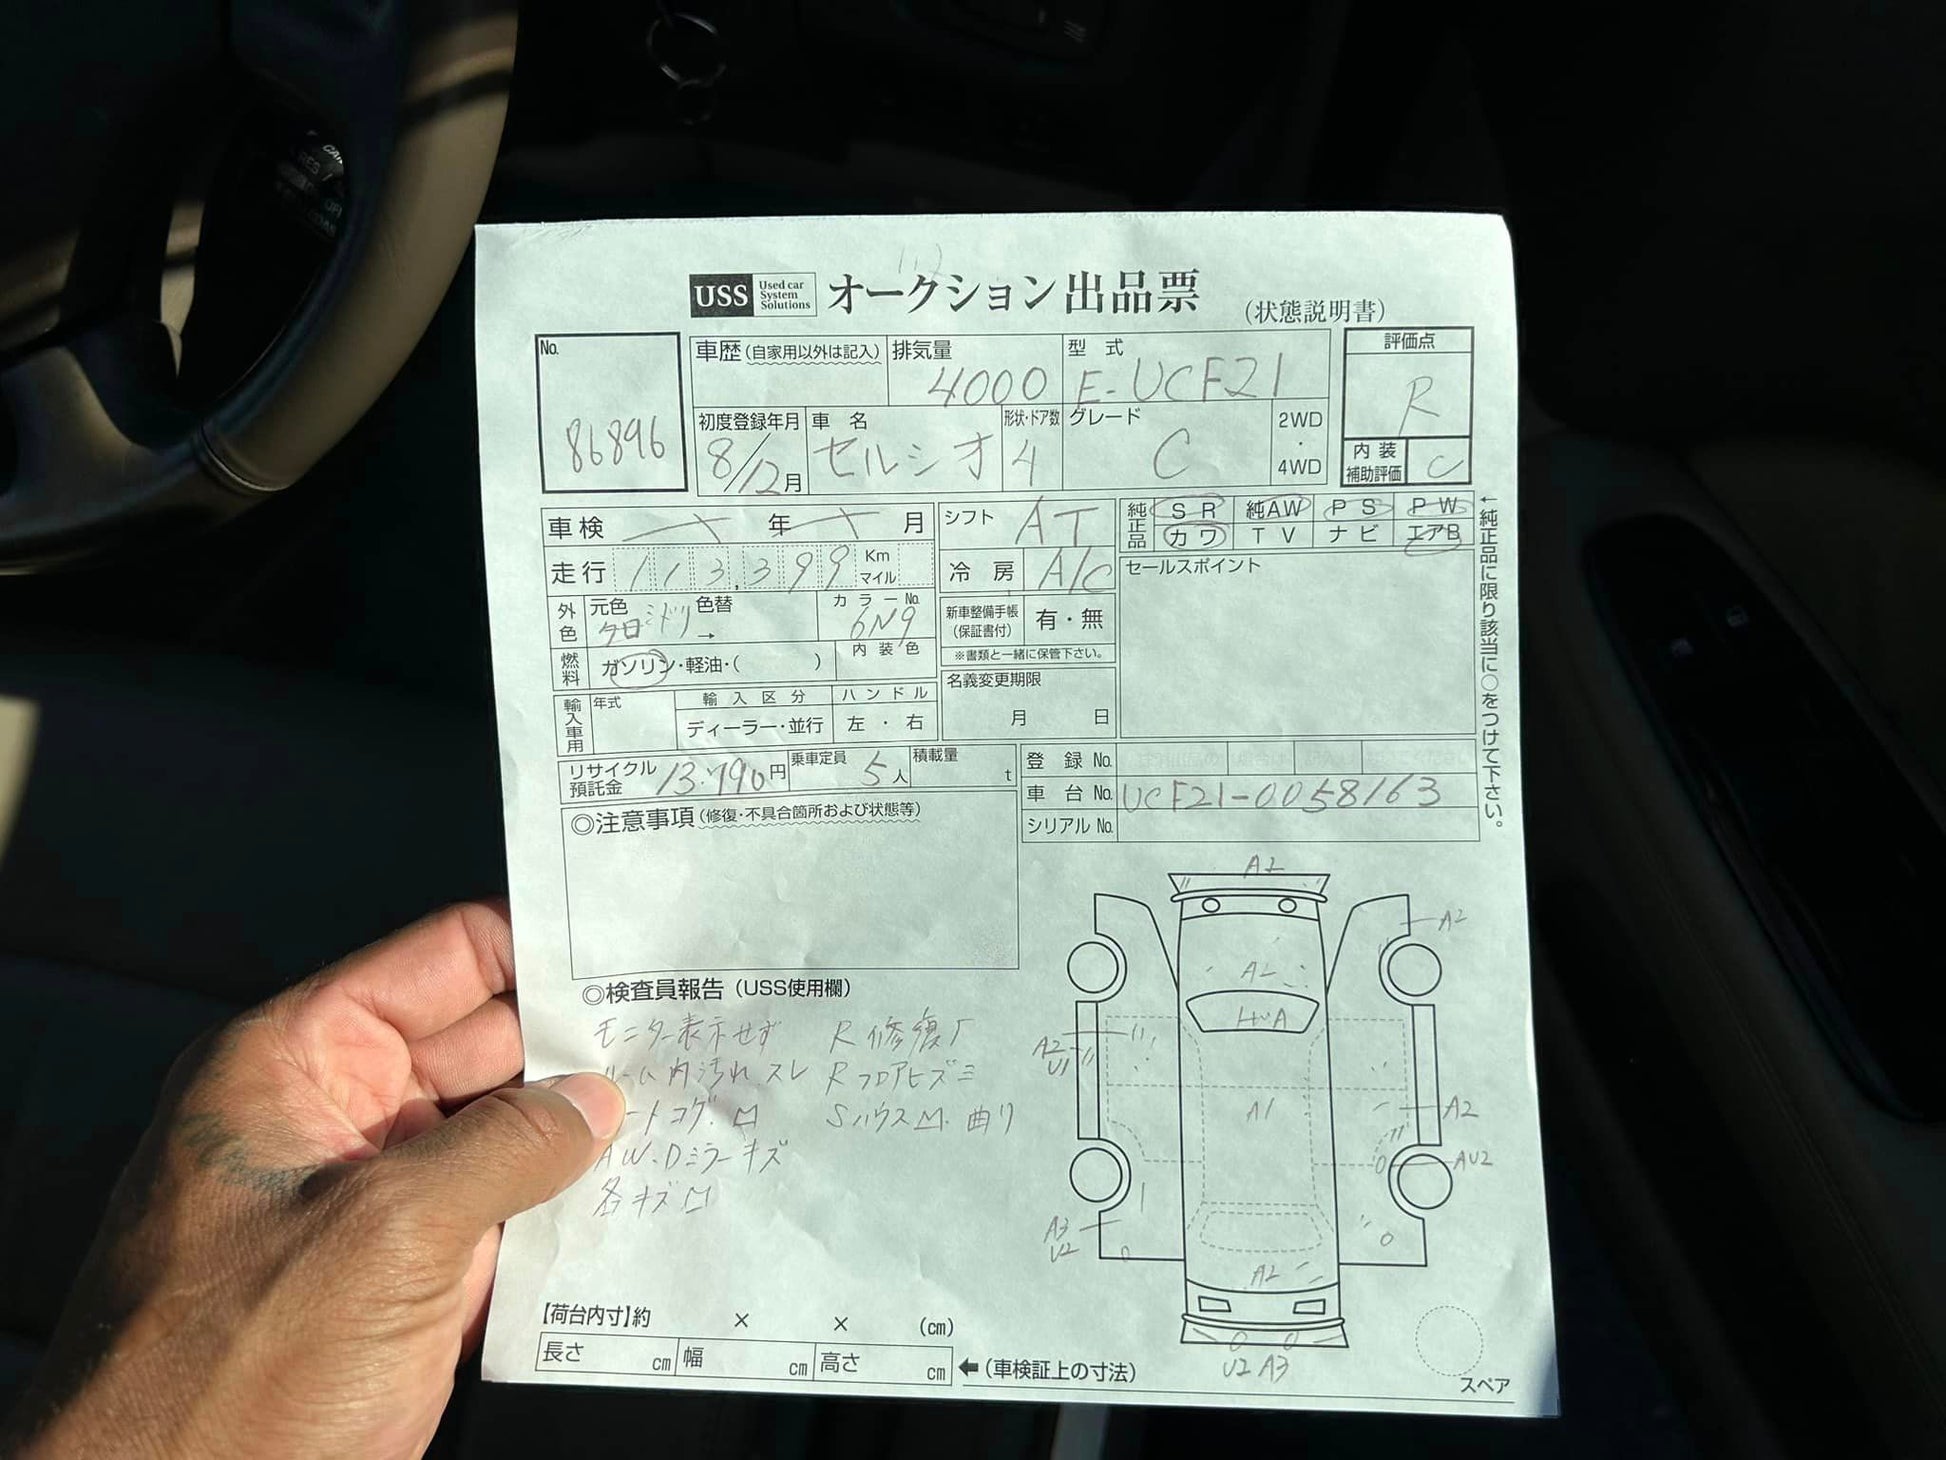 USS Used car System Solutions オークション出品票 (状態説明書)
No. 86896
車歴(自家用以外は記入) 排気量 4000 型式 E-UCF21
初度登録年月 8/12月 車名 セルシオ 形状・ドア数 4 グレード C 2WD・4WD
評価点 R
内装補助評価 C
車検 年 月
走行 113,399 Km マイル
シフト AT
冷房 A/C
純正品 SR 純AW PS PW
カワ TV ナビ エアB
←純正品に限り該当に○をつけて下さい。
セールスポイント
外色 元色 クロ ミドリ 色替 → カラーNo. 6N9
燃料 ガソリン・軽油・( ) 内装色
新車整備手帳(保証書付) 有・無
※書類と一緒に保管下さい。
輸入車用 年式 輸入区分 ディーラー・並行 ハンドル 左・右
名義変更期限 月 日
リサイクル預託金 13.790円 乗車定員 5人 積載量 t
登録No.
車台No. UCF21-0058163
シリアルNo.
◎注意事項(修復・不具合箇所および状態等)
◎検査員報告(USS使用欄)
モニター表示せず R修復
内汚れ スレ Rフロアヒズミ
コゲ Sハウス 曲り
AW.Dミラーキズ
各キズ
A2
A2
A2
H/A
A2
U1
A1
A2
AU2
A3
U2
A2
U2 A3
【荷台内寸】約 × × (cm)
長さ cm 幅 cm 高さ cm ←(車検証上の寸法)
スペア